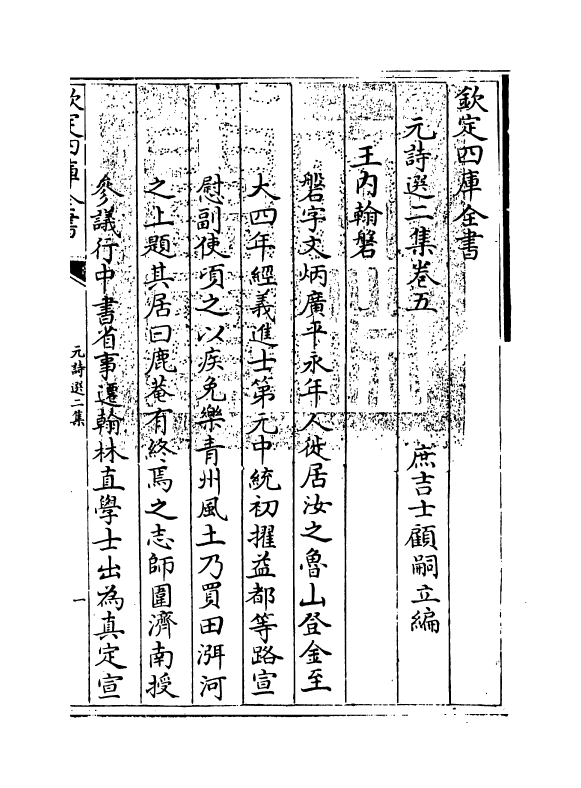 欽定四庫全書
元詩選二集卷五
庶吉士顧嗣立編
王内翰磐
磐字文炳廣平永年人徙居汝之魯山登金至
大四年經義進士第元中統初擢益都等路宣
慰副使項之以疾免樂青州風土乃買田渳河
之上題其居曰鹿菴有終焉之志師圍濟南授
參議行中書省事遷翰林直學士出為真定宣
欽定四庫全書
元詩選二集
一